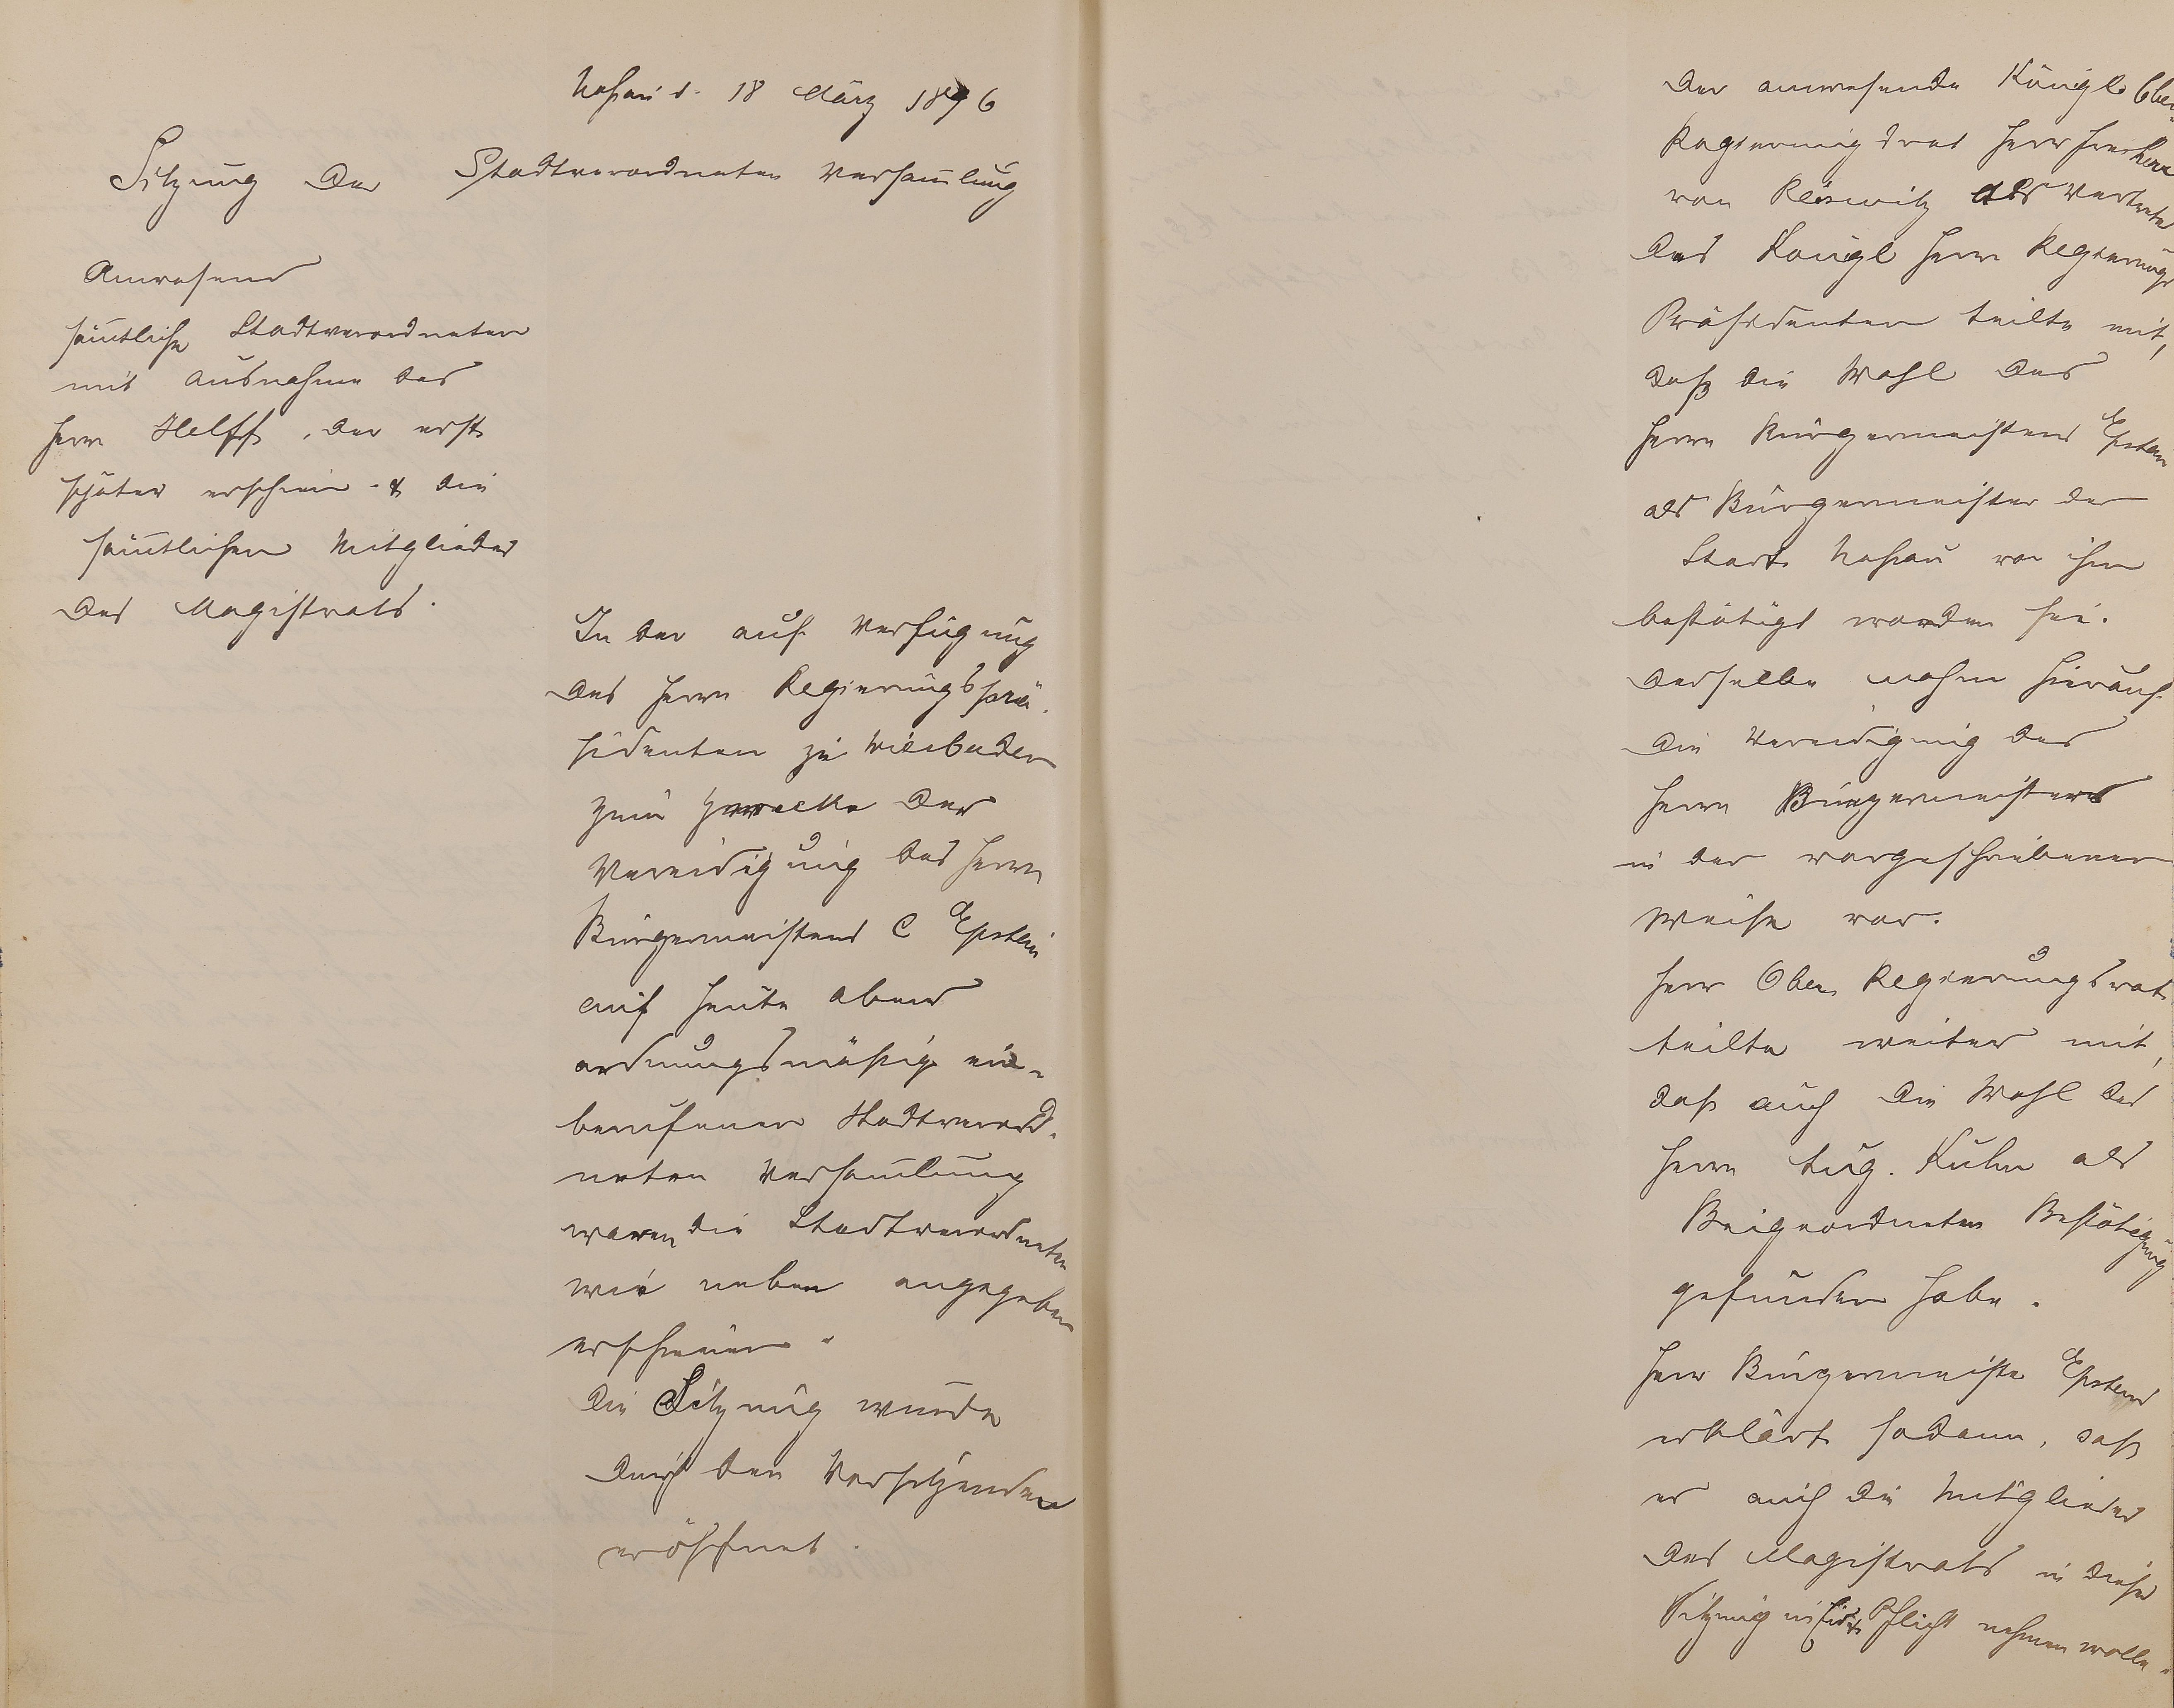 Nassau d. 18 März 1896
Sitzung der Stadtverordneten Versam̄lung
Anwesend
säm̄tliche Stadtverordneten
mit Ausnahme des
Herrn Helff, der erst
später erschien & die
säm̄tlichen Mitglieder
des Magistrats.
In der auf Verfügung
des Herrn Regierungsprä-
sidenten zu Wiesbaden
zum Zwecke der
Vereidigung des Herrn
Bürgermeisters C Epstein
auf heute Abend
ordnungsmäßig ein-
berufenen Stadtverord-
neten Versam̄lung
waren die Stadtverordneten
wie neben angegeben
erschienen.
Die Sitzung wurde
durch den Vorsitzenden
eröffnet.
Der anwesende Königl Ober
Regierungsrat Herr Freiherr
von als Vertreter
des Königl Herrn Regierungs
Präsidenten teilte mit,
daß die Wahl des
Herrn Bürgermeisters Epstein
als Bürgermeister der
Stadt Nassau von ihm
bestätigt worden sei.
Derselbe nahm hierauf
die Vereidigung des
Herrn Bürgermeisters
in der vorgeschriebenen
Weise vor.
Herr Ober Regierungsrat
teilte weiter mit,
daß auch die Wahl des
Herrn Aug. Kuhn als
Beigeordneten Bestätigung
gefunden habe.
Herr Bürgermeister Epstein
erklärt sodann, daß
er auch die Mitglieder
des Magistrats in dieser
Sitzung in Eid & Pflicht nehmen wolle.